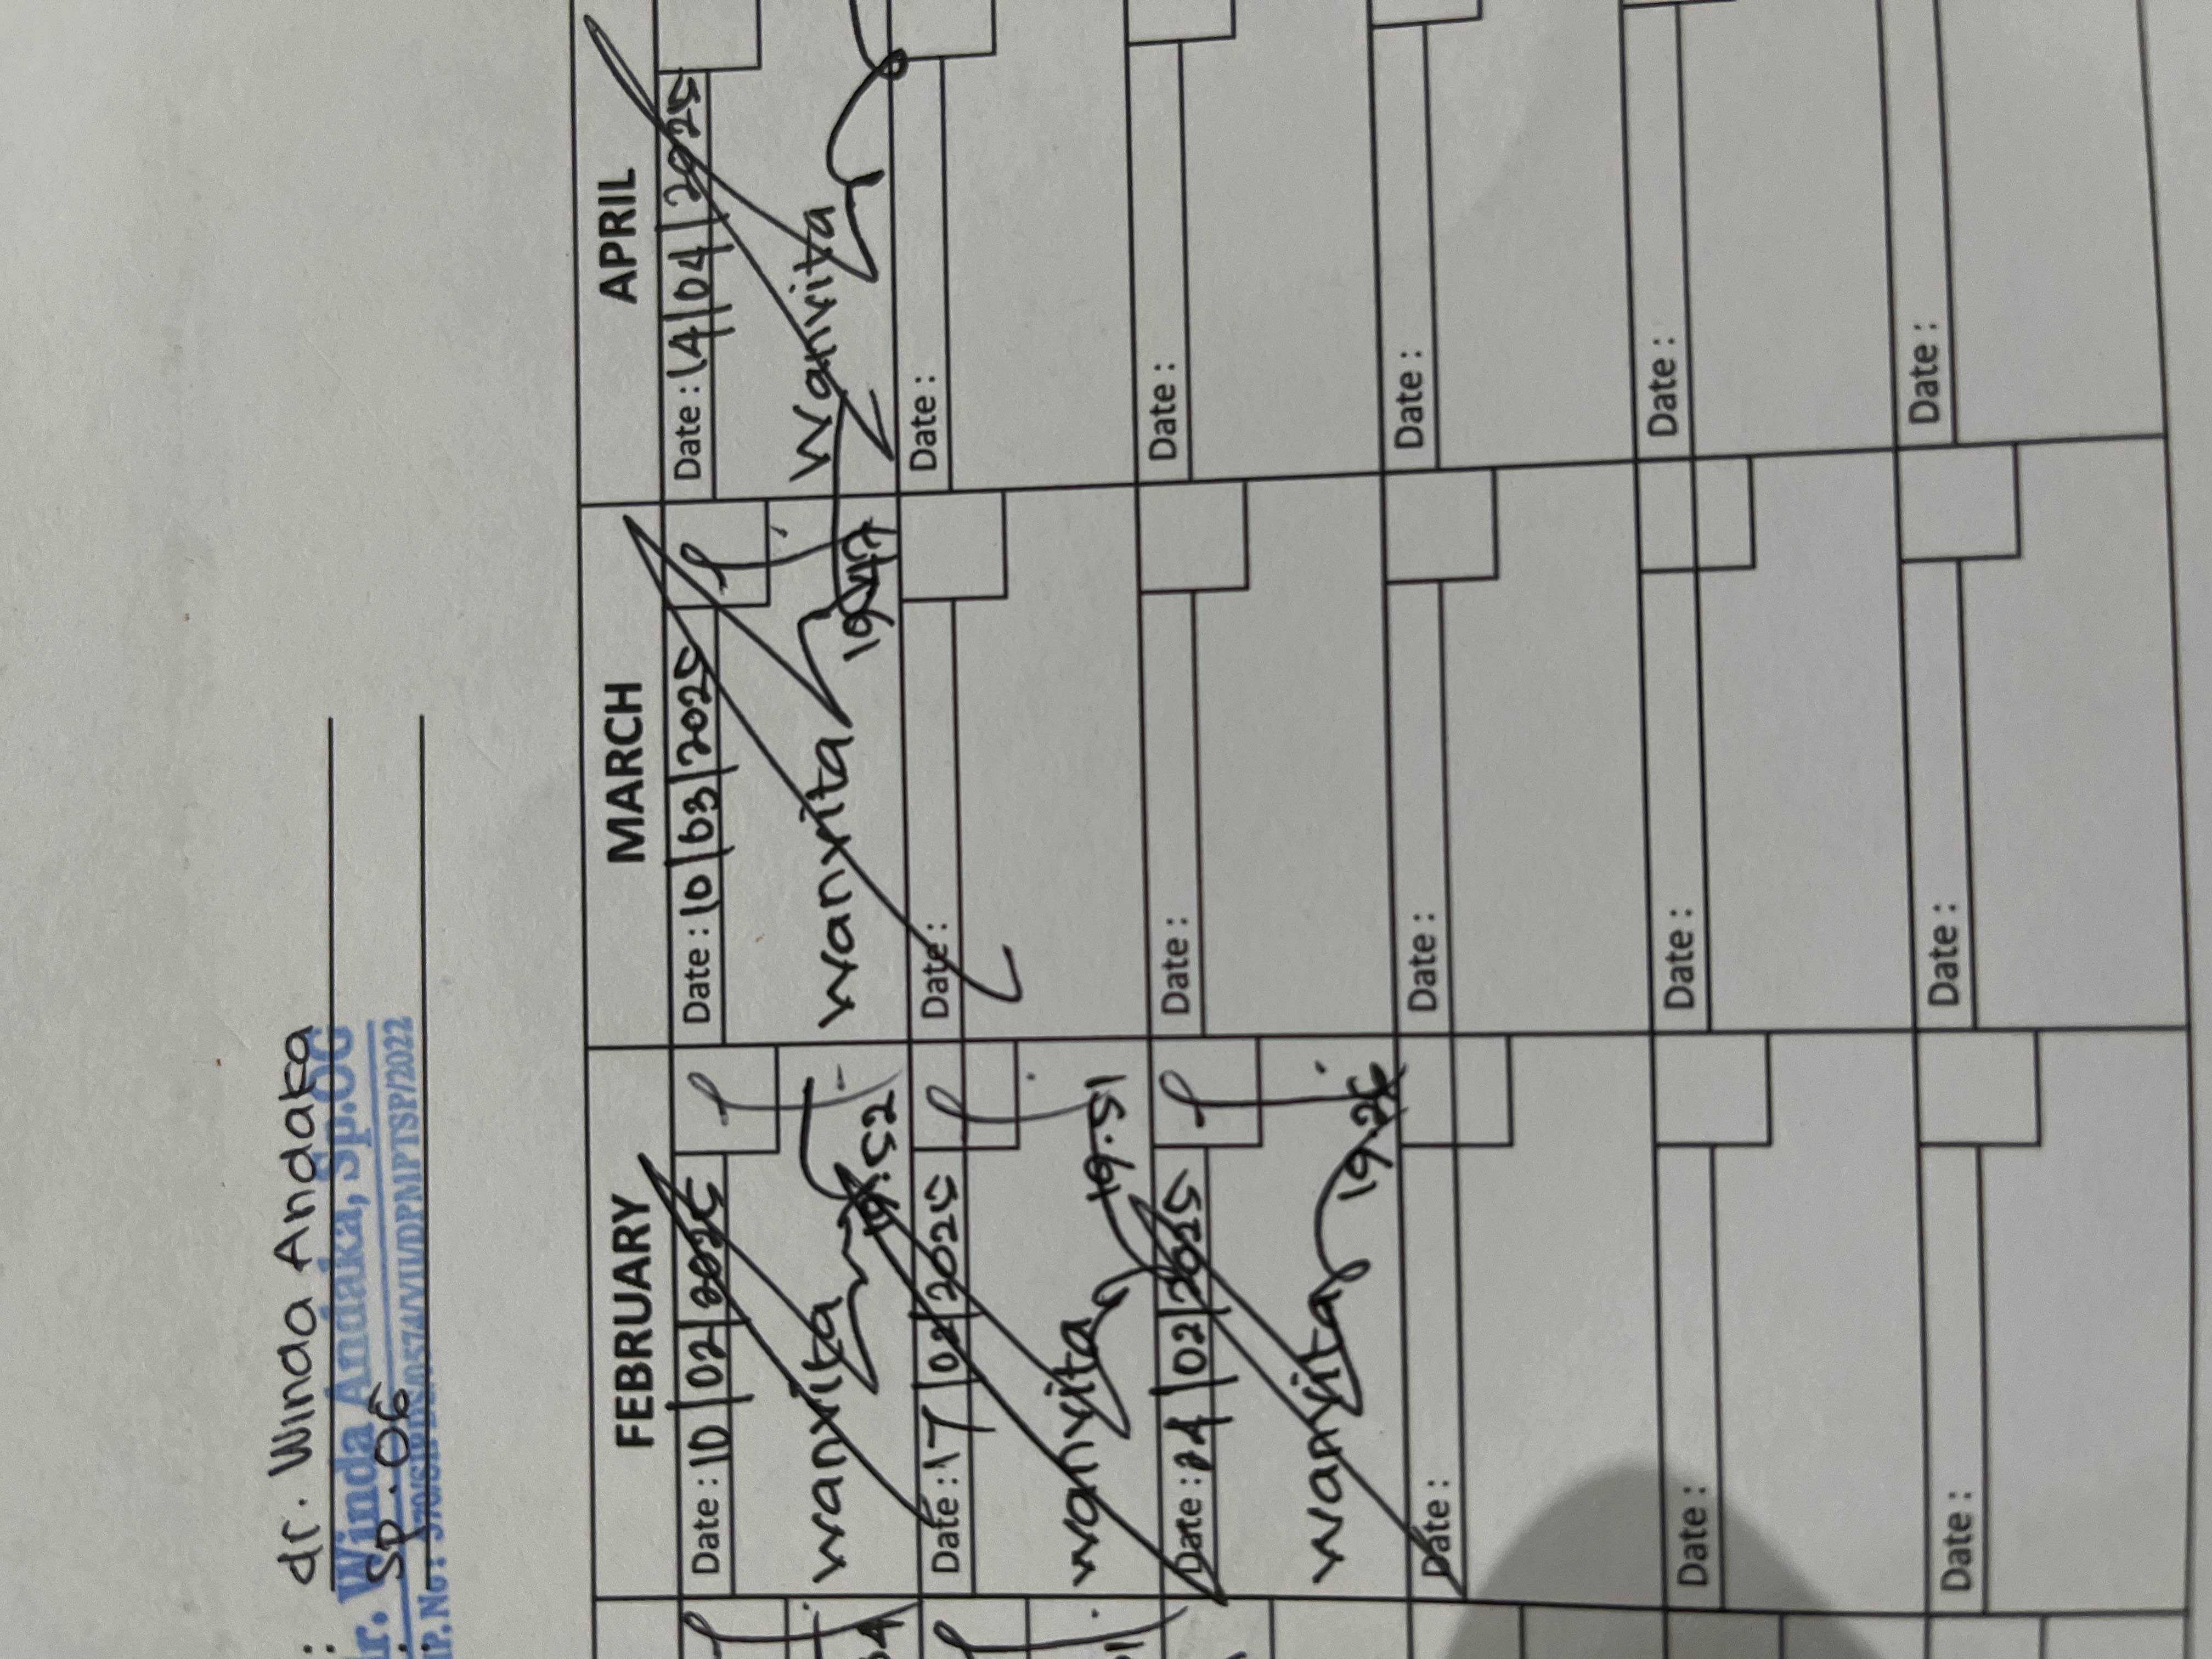 : dr. Winda Andaka
dr. Winda Andaka, Sp.OG
: Sp.OG
FEBRUARY MARCH APRIL
Date : 10 | 02 | 2025 Date : 10 | 03 | 2025 Date : 14 | 04 | 2025
wanvita wanvita wanvita
19.52 19.47
Date : 17 | 02 | 2025 Date : Date :
wanvita
19.51
Date : 24 | 02 | 2025 Date : Date :
wanvita
Date : Date : Date :
Date : Date : Date :
Date : Date : Date :